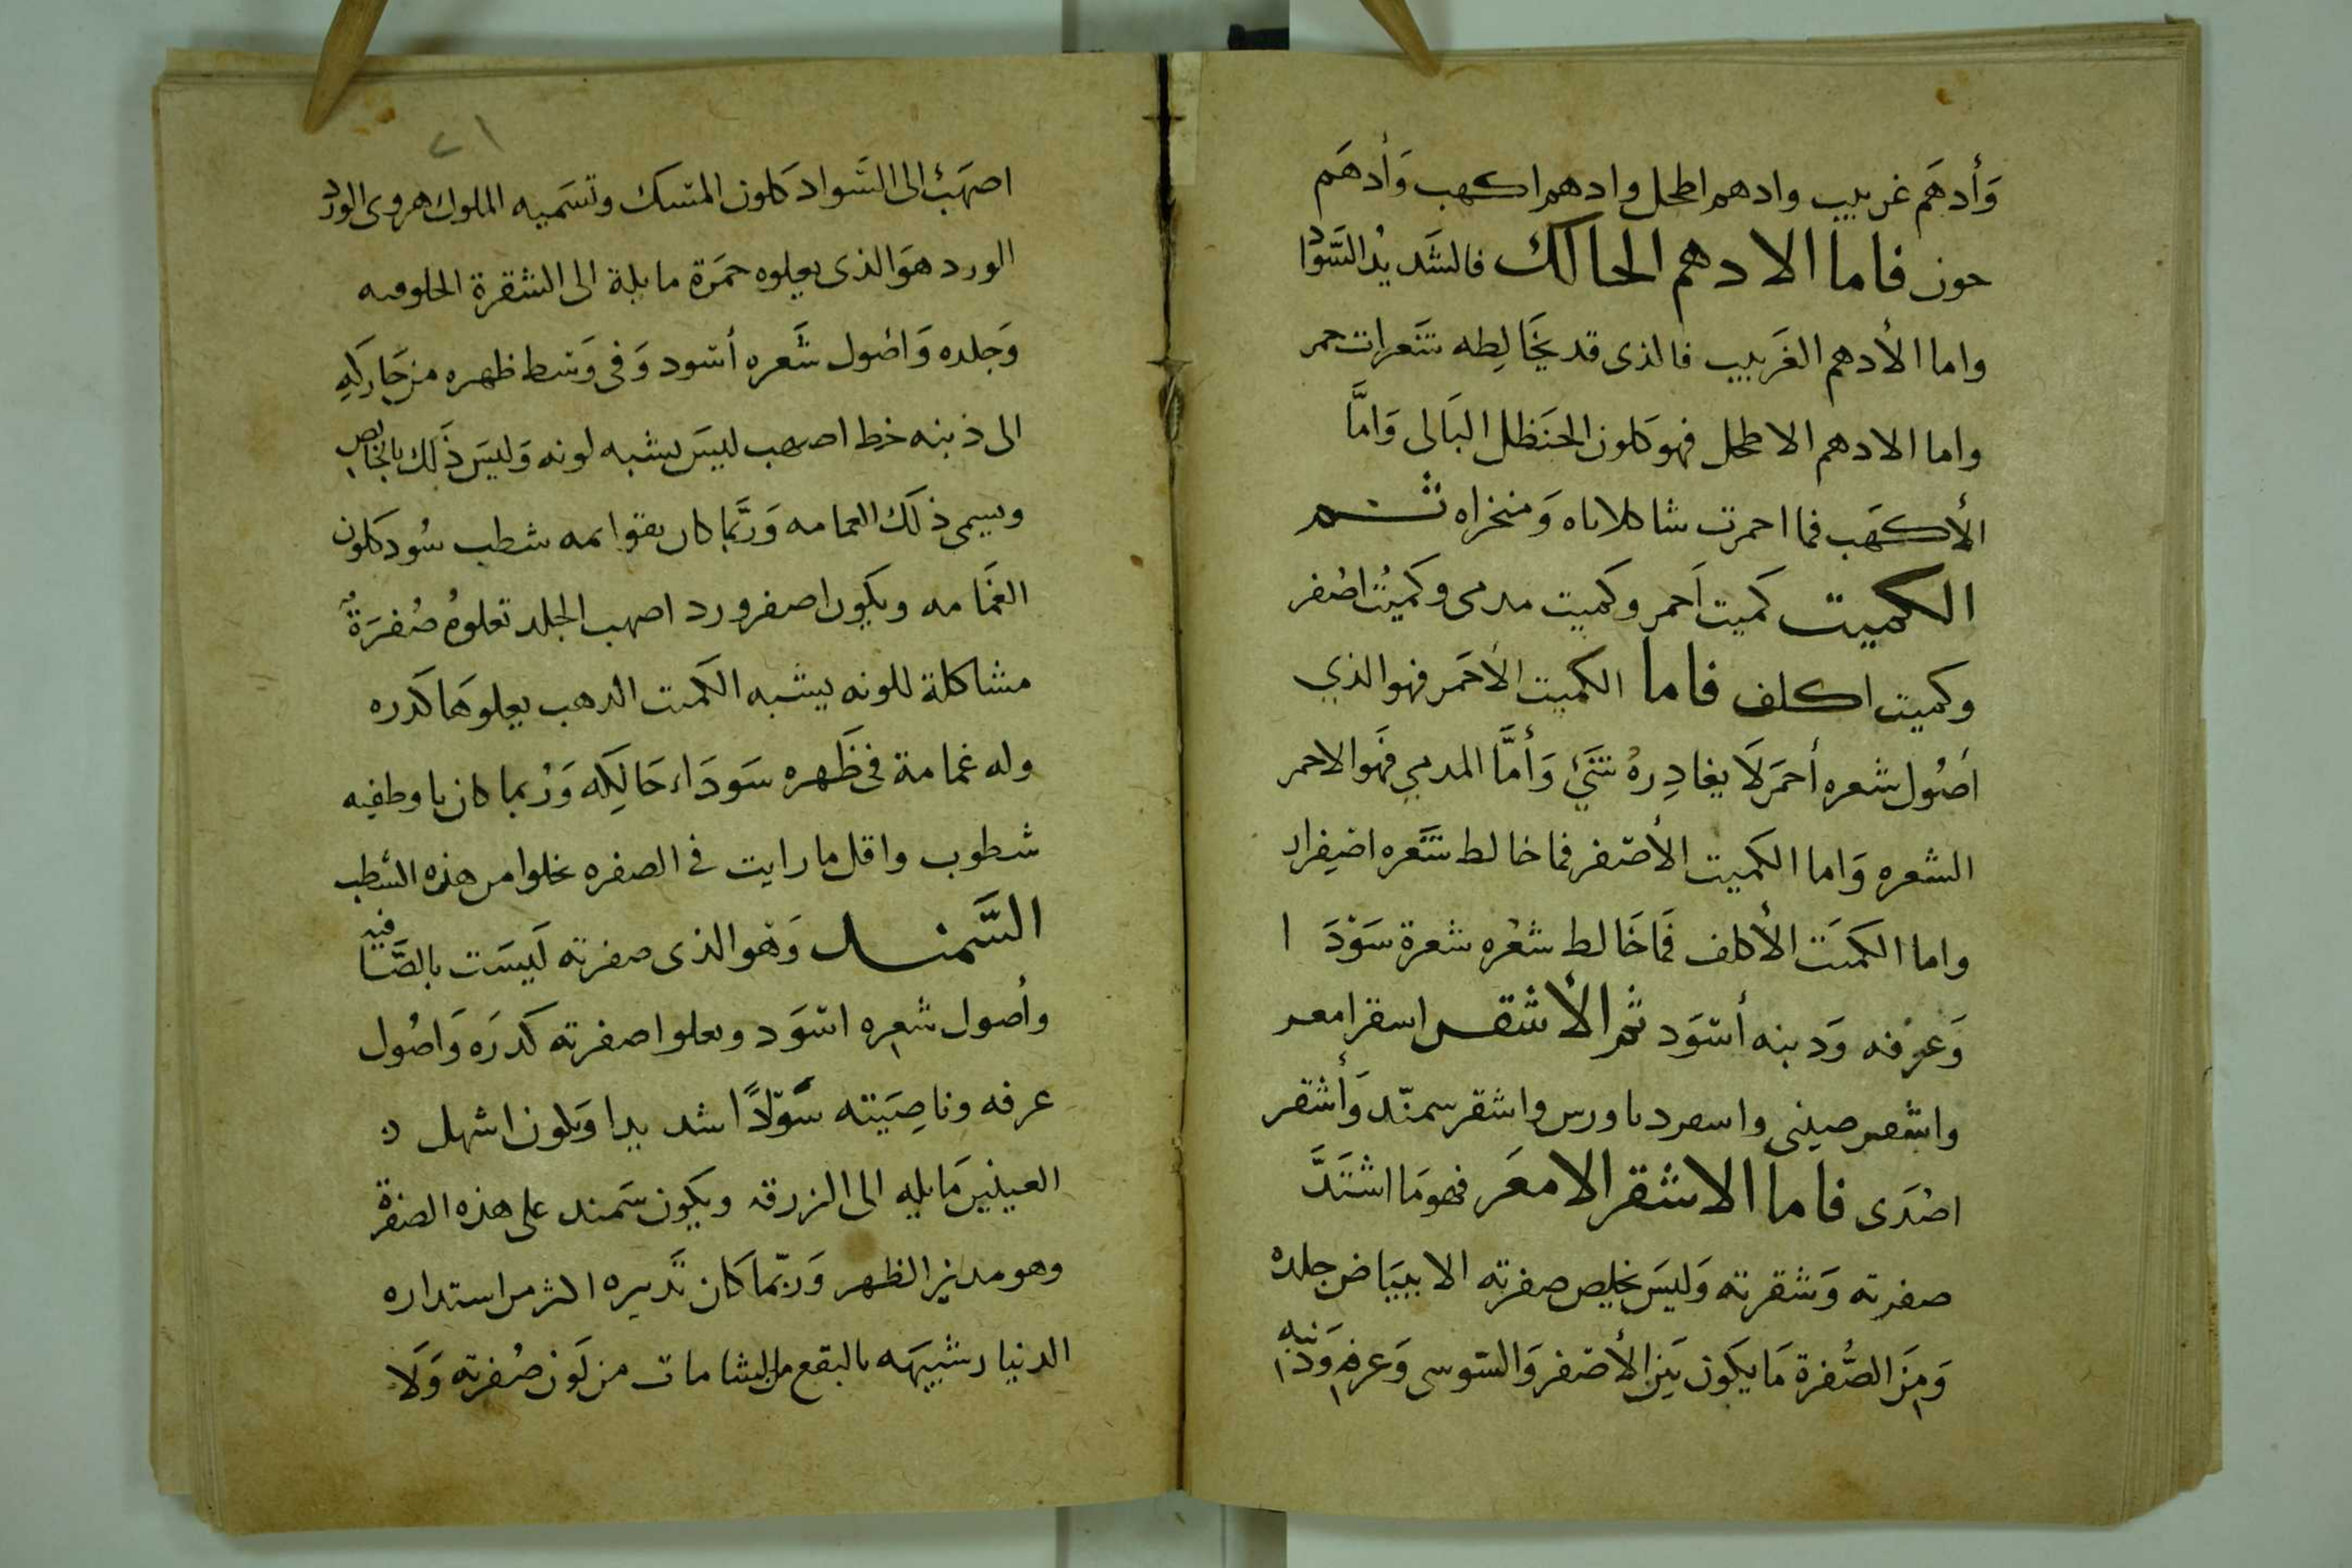 وَأدهَم غربيب وادهم اطحل وادهم اكهب وَأدهَم
جون فاما الادهم الحالك فالشَديدُ السَّواد
واما الأدهم الغَربيب فالذى قد يخَالِطه شَعرات حمر
واما الادهم الاطحل فهو كلون الحنَظل البَالى وَامَّا
الأكهَب فما احمرت شاكلاتاه وَمنخراه ثم
الكميت كميت اَحمر وكميت مدمى وكميُت اصُفر
وكميت اكلف فاما الكميت الأحَمر فهو الذي
اصُول شعره أحمَر لَا يغادِرهُ شَئ وَأمَّا المدمي فَهو الاحمر
الشعره وَاما الكميت الأصفر فما خالط شَعره اصفِرار
واما الكميَت الأكلف فمَا خَالط شعُره شعرة سَوْدَا
وَعرْفه وَذنبه أسوَد ثم الأشقر اشقر امعر
واشقر صينى واشقر دناورس واشقر سمنّد وَأشقر
اصْدَى فاما الاشقر الامعَر فهو مَا اشتَدَّ
صفرته وَشقرته وَليسَ يخلص صفرته الا ببيَاض جلده
وَمِنَ الصُّفرة مَا يكَون بَين الأصفر وَالسّوسى وَعرفه وَذنبه
٢١
اصهَبُ الى السَّواد كَلون المسك وتسَميه الملوك هروى الورد
الورد هوَ الذى يعلوه حمَرة مايلة الى الشقرة الحلوقيه
وَجلده وَاصُول شَعره أسود وَفى وَسط ظهره من حَاركَهِ
الى ذنبه خط اصهب ليسَ يشبه لونه وَليسَ ذَلك بالخالص
ويسمى ذلَك الغمامه وَربَّما كان بقوايمه شطب سُود كلون
الغمَامه ويكون اصفر ورد اصهب الجلد تعلوهُ صُفرَةٌ
مشاكلة للونه يشبه الكميت الذهب يعلوهَا كَدره
وله غمامة فى ظَهره سَودَاء حَالِكَه وَرُبما كان باوظفيه
شطوب واقل ما رايت فى الصفره يخلوا من هذه الشطب
السَّمند وَهو الذى صفرته لَيسَت بالصَّافيه
وأصول شعره اسوَد ويعلوا صفرته كَدرَه وَاصُول
عرفه وناصِيَته سَوَادًا شديدا وَيكون اشهل
العينين مَايله الى الزرقه ويكون سَمند على هذه الصفرة
وهو مدنر الظهر وَربّما كان تَدنيره اكثر من استداره
الدنيار شبيهَه بالبقع والشامات من لَون صُفرته وَلَا